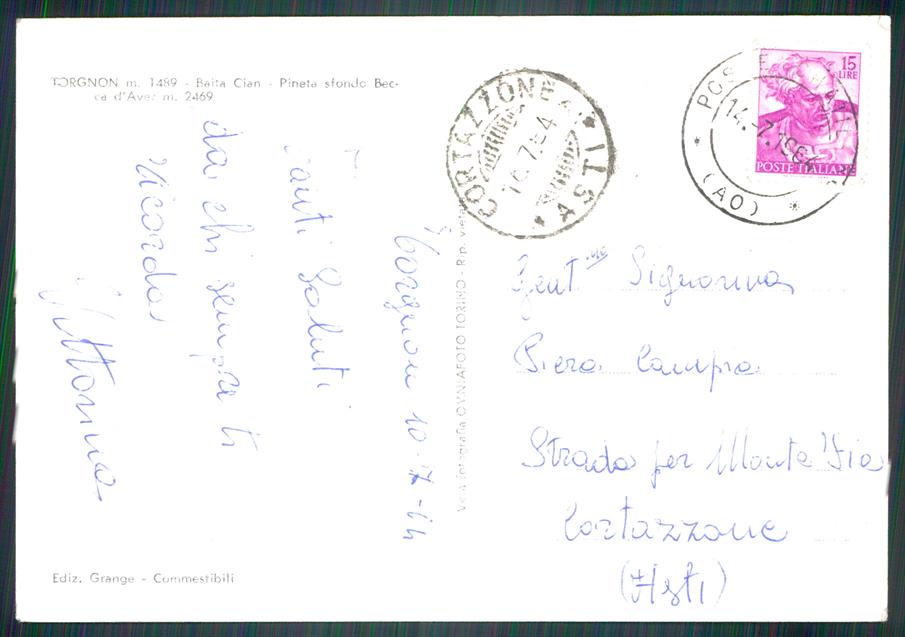 TORGNON m. 1489 - Baita Cian - Pineta sfondo Bec-
ca d'Aver m. 2469
Torgnon 10-7-64
Tanti Saluti
da chi sempre ti
ricorda
Vittorina
Ediz. Grange - Commestibili
Vera fotografia OMNIAFOTO TORINO - Rip. vietata
CORTAZZONE
* ASTI *
16.7.64
POSTE
14.-7.1964
(AO)
15
LIRE
POSTE ITALIANE
Gent.ma Signorina
Piera Campia
Strada per Monte
Cortazzone
(Asti)